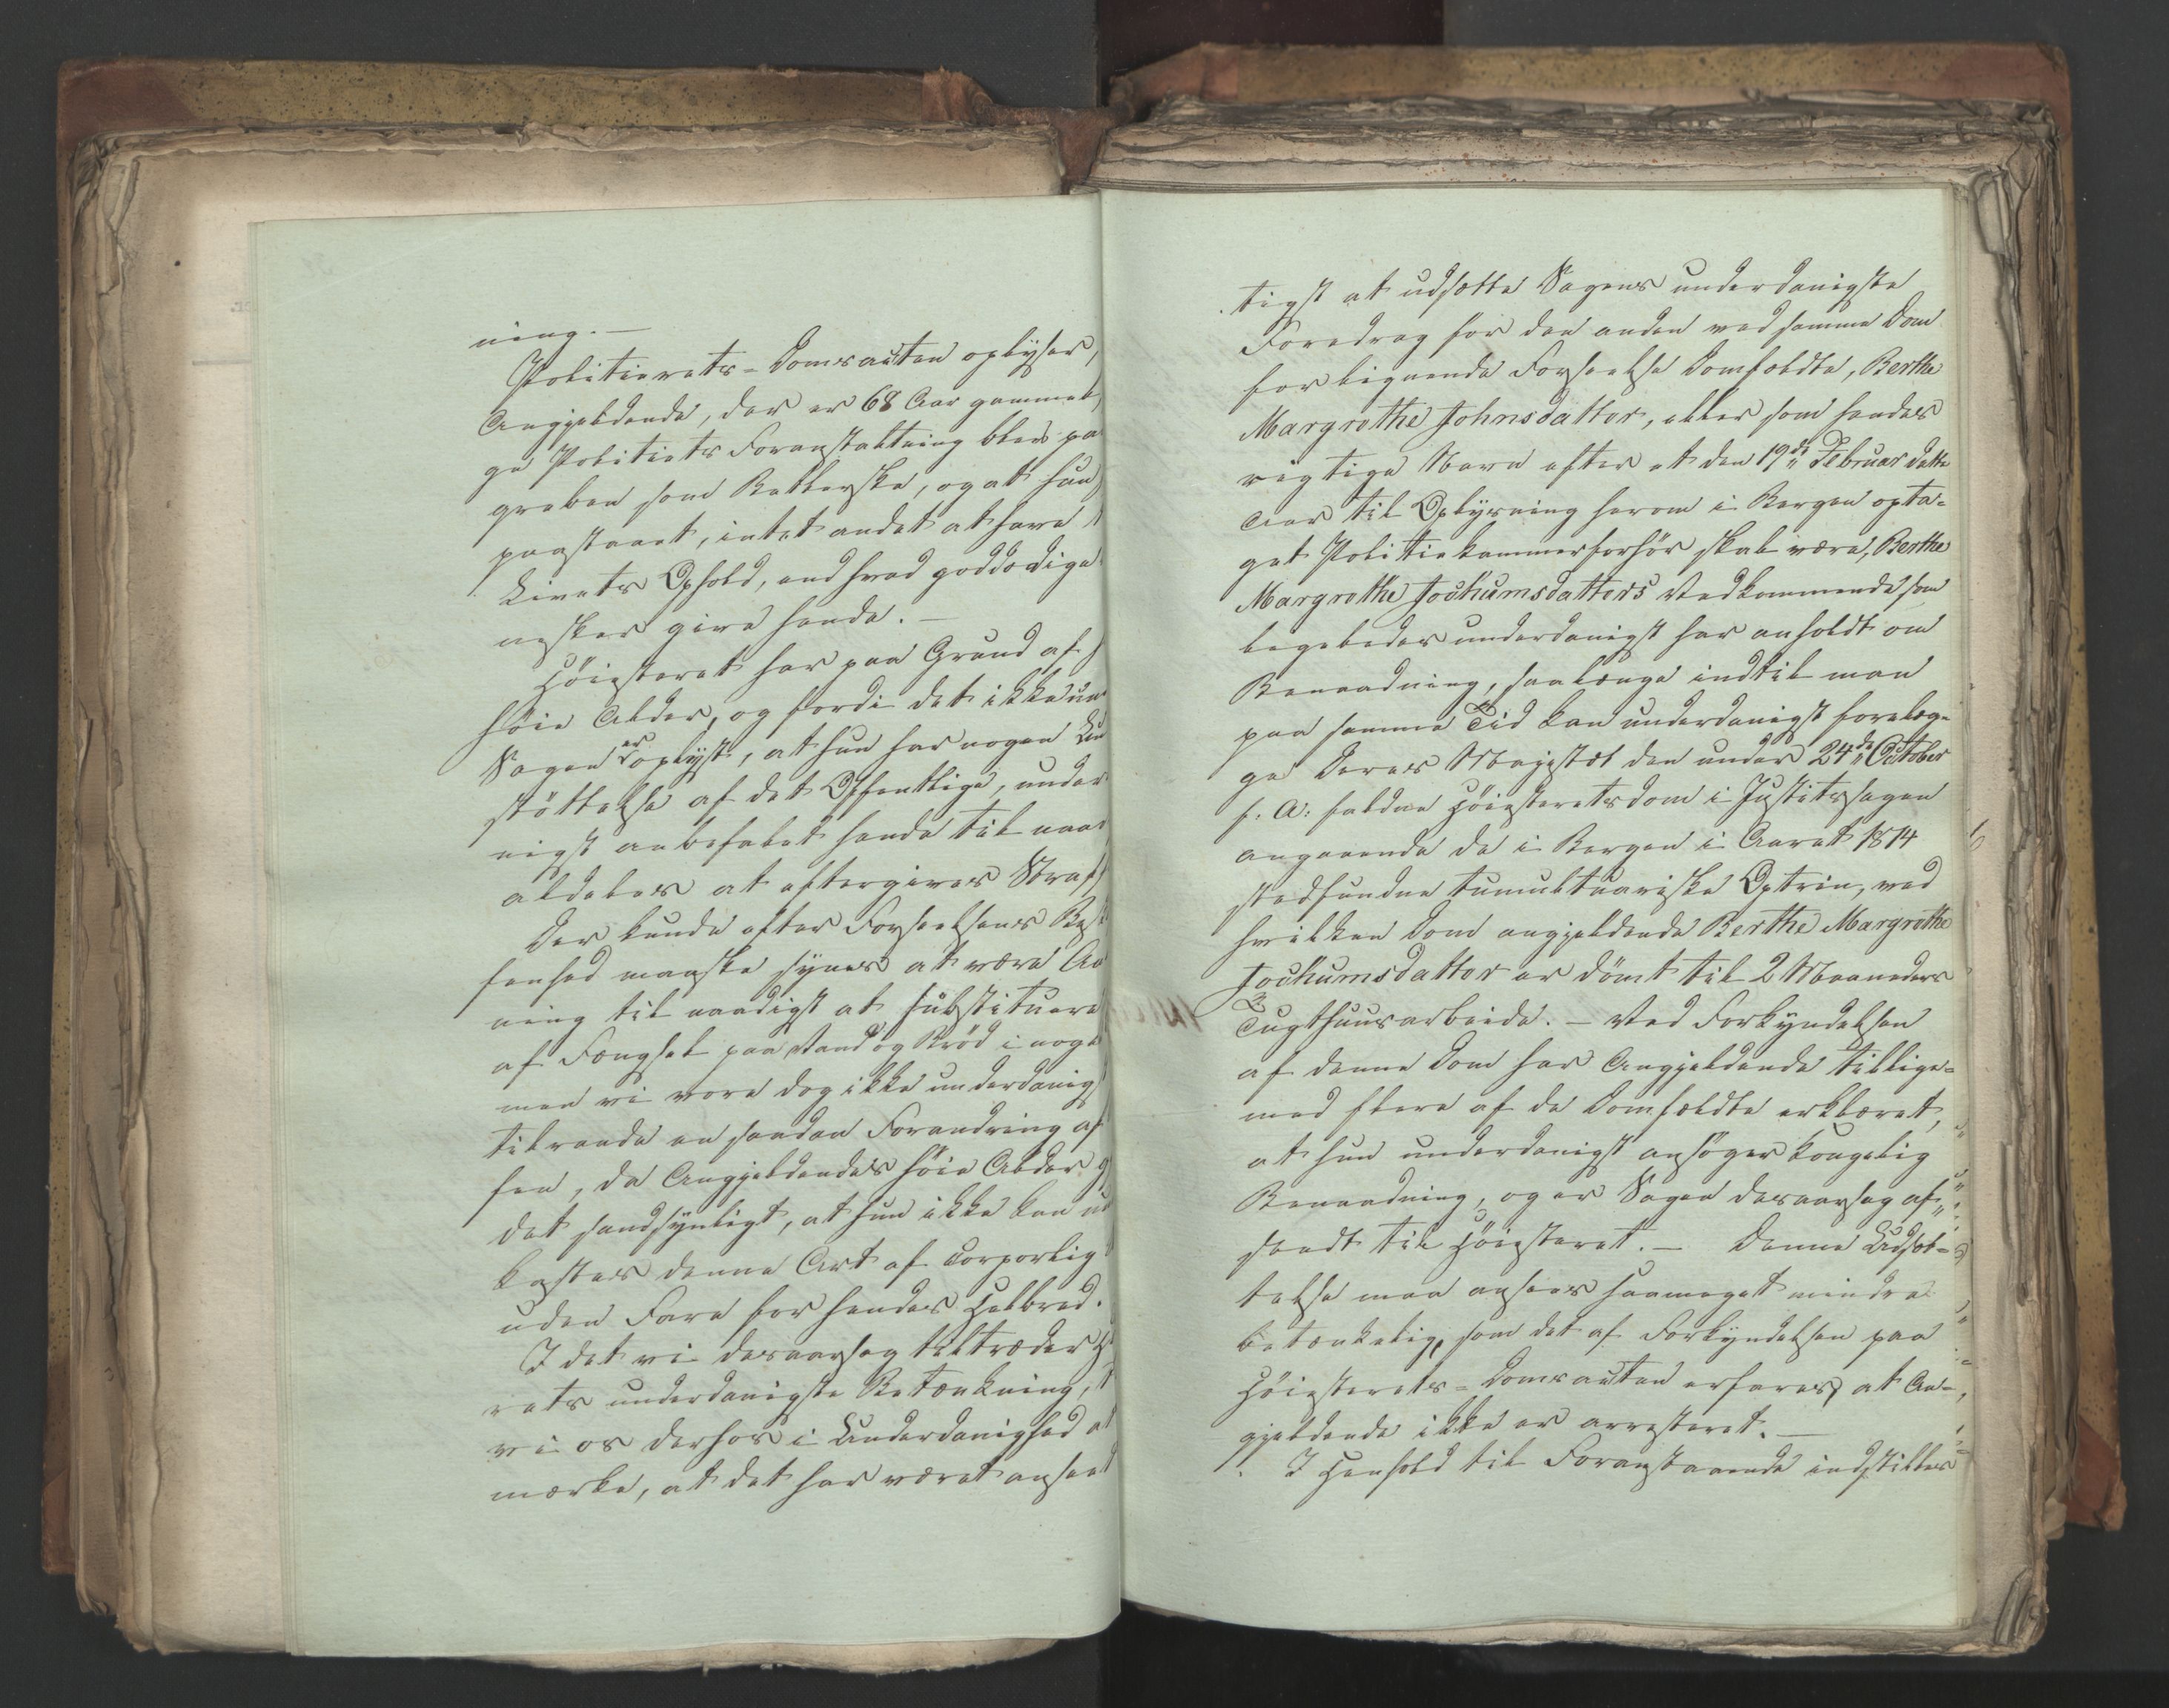 ning. —
Politierets-Domsacten oplyser,
Angjeldende, der er 68 Aar gammel,
ge Politiets Foranstaltning blev paa
greben som Betlerske, og at hun
paastaaet, intet andet at have
Livets Ophold, end hvad goddædige
nesker give hende. —
Høiesteret har paa Grund af
høie Alder, og fordi det ikke un
Sagen er oplyst, at hun har nogen Un
støttelse af det Offentlige, under
nigst anbefalet hende til naa
aldeles at eftergives Straf
Der kunde efter Forseelsens Be
fenhed maaske synes at være An
ning til naadigst at substituere
af Fængsel paa Vand og Brød i nog
men vi vove dog ikke underdanig
tilraade en saadan Forandring af
fen, da Angjeldendes høie Alder g
det sandsynligt, at hun ikke kan u
kastes denne Art af corporlig
uden Fare for hendes Helbred.
I det vi desaarsag tiltræder H
rets underdanigste Betænkning,
vi os derhos i Underdanighed at
mærke, at det har været anseet
tigst at udsætte Sagens underdanigste
Foredrag for den anden ved samme Dom
for lignende Forseelse Domfældte, Berthe
Margrethe Johnsdatter, eller som hendes
rigtige Navn efter et den 19de Februar dette
Aar til Oplysning herom i Bergen opta-
get Politiekammerforhør skal være, Berthe
Margrethe Jochumsdatters Vedkommende som
ligeledes underdanigst har anholdt om
Benaadning, saalænge indtil man
paa samme Tid kan underdanigst forelæg-
ge Deres Majestæt den under 24de October
f. A. faldne Høiesteretsdom i Justitssagen
angaaende de i Bergen i Aaret 1814
stedfundne tumultuariske Optrin, ved
hvilken Dom angjeldende Berthe Margrethe
Jochumsdatter er dømt til 2 Maaneders
Tugthuusarbeide. — Ved Forkyndelsen
af denne Dom har Angjeldende tillige-
med flere af de Domfældte erklæret,
at hun underdanigst ansøger kongelig
Benaadning, og er Sagen desaarsag af-
sendt til Høiesteret. — Denne Udsæt-
telse maa ansees saameget mindre
betænkelig, som det af Forkyndelsen paa
Høiesterets-Domsacten erfares, at An-
gjeldende ikke er arresteret. —
I Henhold til Foranstaaende indstilles